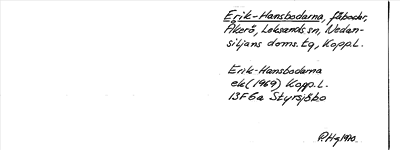 Erik-Hansbodarna, fäbodar,
Åkerö, Leksands sn, Nedan-
siljans doms. tg, Kopp.l.
Erik-Hansbodarna
ek (1969) Kopp.l.
13F 6a Styrsjöbo
P.Hg 1970.